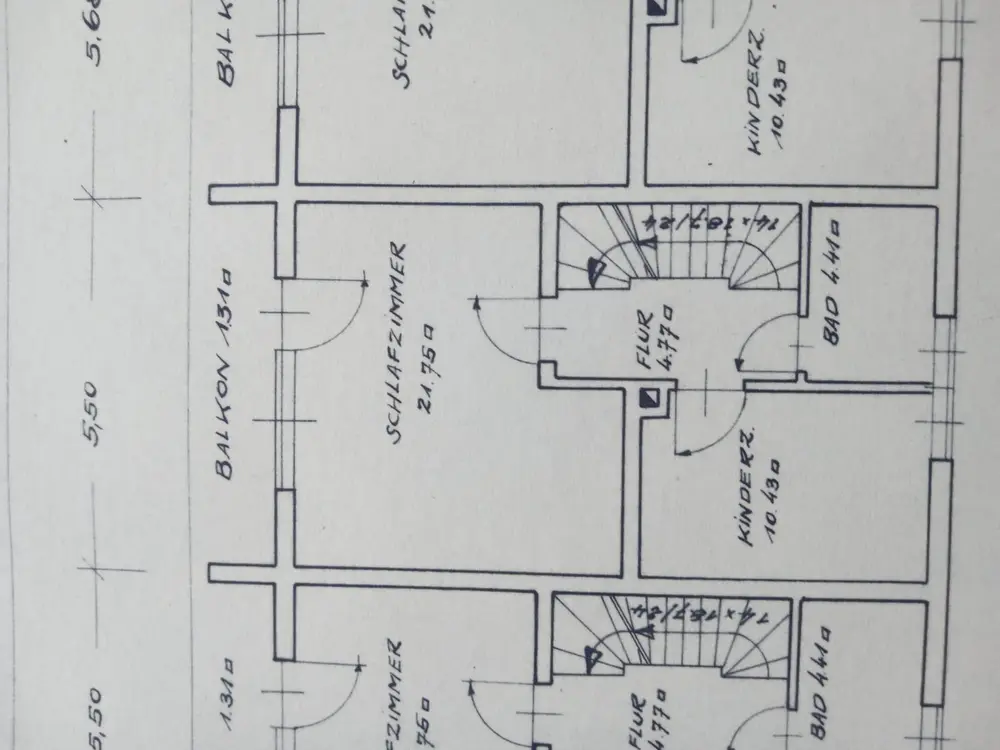 5.68
BALK
SCHLAF
21.
KINDERZ.
10.43
5,50
BALKON 1.31
SCHLAFZIMMER
21.75
14 x 18.7/24
FLUR
4.77
BAD 4.41
KINDERZ.
10.43
5,50
1.31
FZIMMER
75
14 x 18.7/24
FLUR
4.77
BAD 4.41